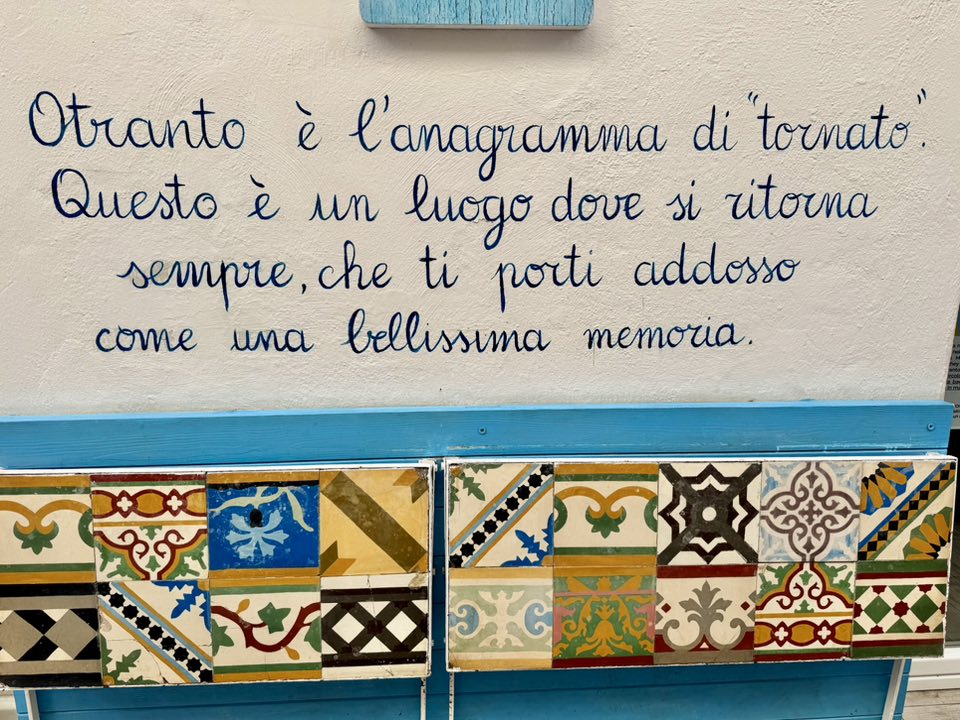 Otranto è l'anagramma di "tornato".
Questo è un luogo dove si ritorna
sempre, che ti porti addosso
come una bellissima memoria.